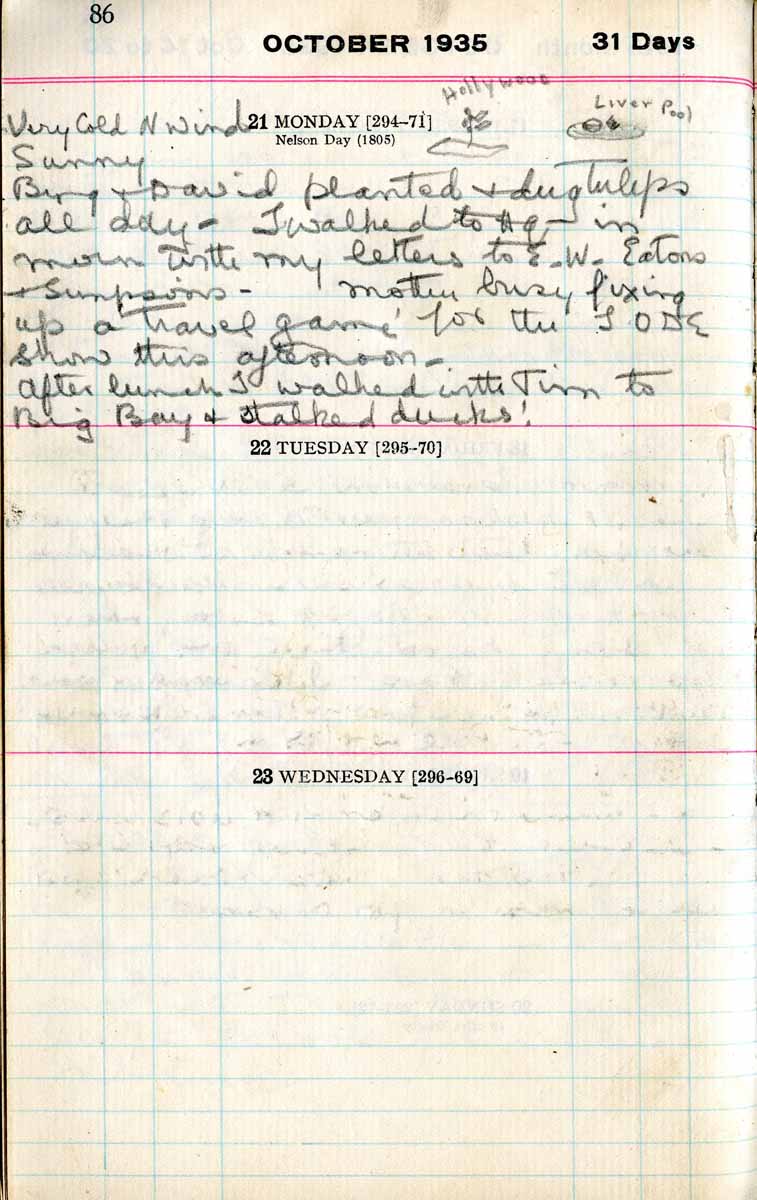 86
OCTOBER 1935 31 Days
Hollywood
Liver Pool
Very Cold N Wind 21 MONDAY [294–71]
Nelson Day (1805)
Sunny
Bing + David planted + dug tulips
all day – I walked to Hq – in
morn with my letters to E. W. Eatons
+ Simpsons – Mother busy fixing
up a 'travel game' for the I O D E
show this afternoon –
After lunch I walked with Tim to
Big Bay + stalked ducks!
22 TUESDAY [295–70]
23 WEDNESDAY [296–69]